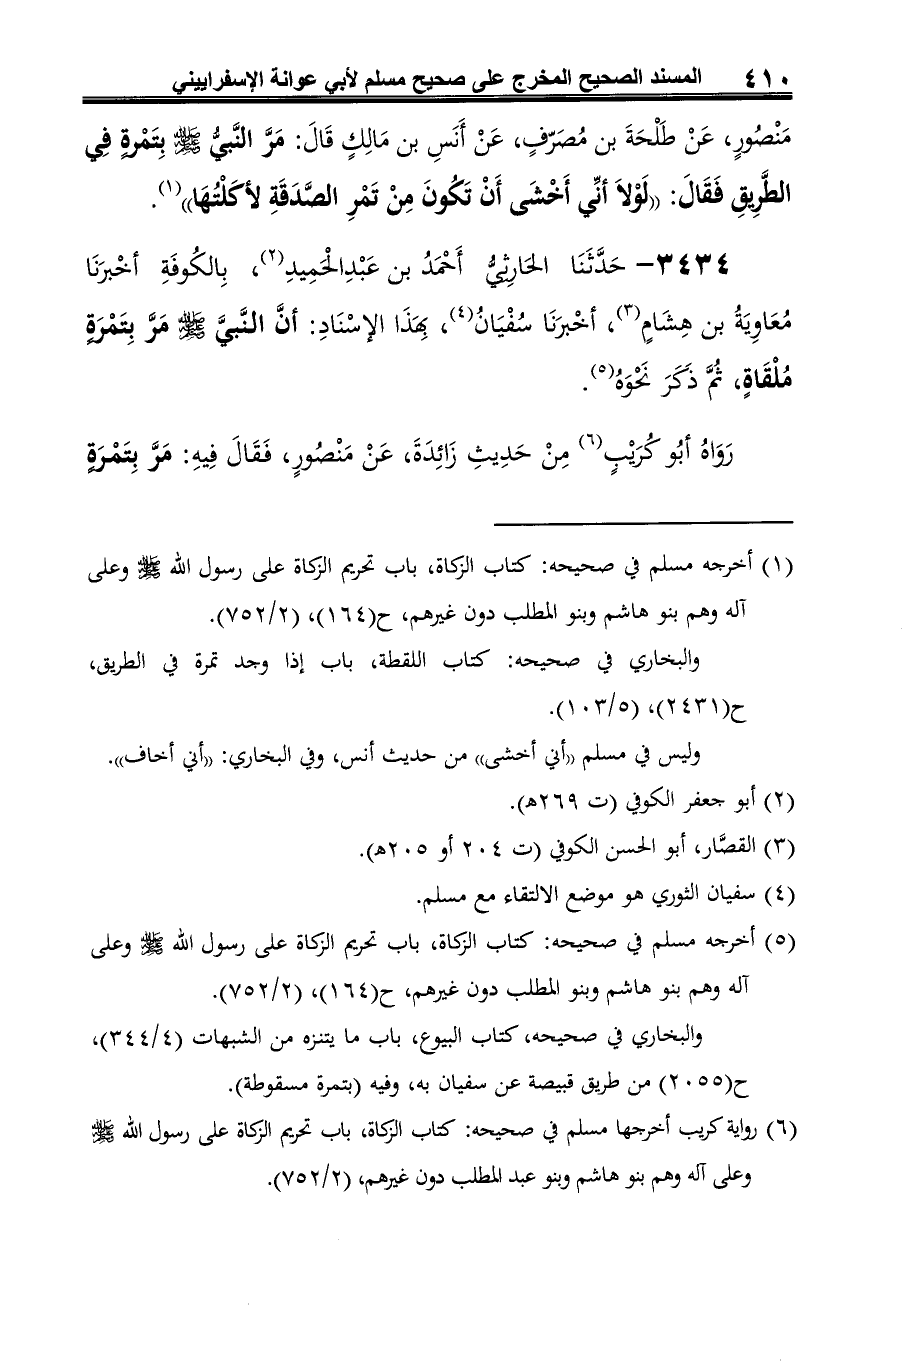 ٤١٠ المسند الصحيح المخرج على صحيح مسلم لأبي عوانة الإسفراييني
مَنْصُورٍ، عَنْ طَلْحَةَ بن مُصَرِّفٍ، عَنْ أَنَسِ بن مَالِكٍ قَالَ: مَرَّ النَّبيُّ ﷺ بِتَمْرةٍ فِي
الطَّرِيقِ فَقَالَ: «لَوْلاَ أنّي أَخْشَى أَنْ تَكُونَ مِنْ تَمْرِ الصَّدَقَةِ لأكَلْتُهَا»(١).
٣٤٣٤- حَدَّثَنَا الحَارِثِيُّ أَحْمَدُ بن عَبْدِالْحَمِيدِ(٢)، بِالكُوفَةِ أخْبرَنَا
مُعَاوِيَةُ بن هِشَامٍ(٣)، أخْبرَنَا سُفْيَانُ(٤)، بِهَذَا الإسْنَادِ: أنَّ النَّبيَّ ﷺ مَرَّ بِتَمْرَةٍ
مُلْقَاةٍ، ثُمَّ ذَكَرَ نَحْوَهُ(٥).
رَوَاهُ أبُو كُرَيْبٍ(٦) مِنْ حَدِيثِ زَائِدَةَ، عَنْ مَنْصُورٍ، فَقَالَ فِيهِ: مَرَّ بِتَمْرَةٍ
(١) أخرجه مسلم في صحيحه: كتاب الزكاة، باب تحريم الزكاة على رسول الله ﷺ وعلى
آله وهم بنو هاشم وبنو المطلب دون غيرهم، ح(١٦٤)، (٧٥٢/٢).
والبخاري في صحيحه: كتاب اللقطة، باب إذا وجد تمرة في الطريق،
ح(٢٤٣١)، (١٠٣/٥).
وليس في مسلم «أني أخشى» من حديث أنس، وفي البخاري: «أني أخاف».
(٢) أبو جعفر الكوفي (ت ٢٦٩ه).
(٣) القصَّار، أبو الحسن الكوفي (ت ٢٠٤ أو ٢٠٥ه).
(٤) سفيان الثوري هو موضع الالتقاء مع مسلم.
(٥) أخرجه مسلم في صحيحه: كتاب الزكاة، باب تحريم الزكاة على رسول الله ﷺ وعلى
آله وهم بنو هاشم وبنو المطلب دون غيرهم، ح(١٦٤)، (٧٥٢/٢).
والبخاري في صحيحه، كتاب البيوع، باب ما يتنزه من الشبهات (٣٤٤/٤)،
ح(٢٠٥٥) من طريق قبيصة عن سفيان به، وفيه (بتمرة مسقوطة).
(٦) رواية كريب أخرجها مسلم في صحيحه: كتاب الزكاة، باب تحريم الزكاة على رسول الله ﷺ
وعلى آله وهم بنو هاشم وبنو عبد المطلب دون غيرهم، (٧٥٢/٢).